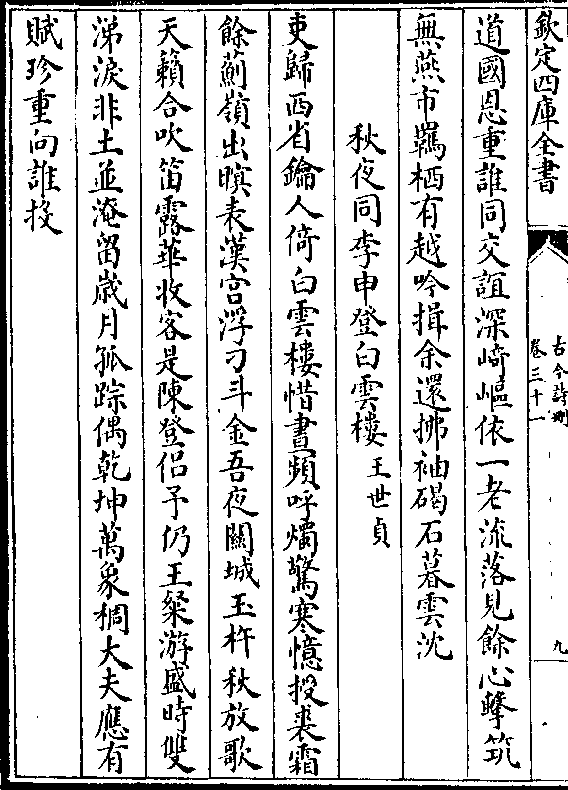 欽定四庫全書
古今詩刪
卷三十一
九
道國恩重誰同交誼深﨑嶇依一老流落見餘心擊筑
無燕市羈栖有越吟揖余還拂袖碣石暮雲沈
秋夜同李申登白雲樓王世貞
吏歸西省鑰人倚白雲樓惜晝頻呼燭驚寒憶授裘霜
餘薊嶺出暝表漢宫浮刁斗金吾夜關城玉杵秋放歌
天籟合吹笛露華收客是陳登侣予仍王粲游盛時雙
涕淚非土並淹留嵗月孤踪偶乾坤萬象稠大夫應有
賦珍重向誰投